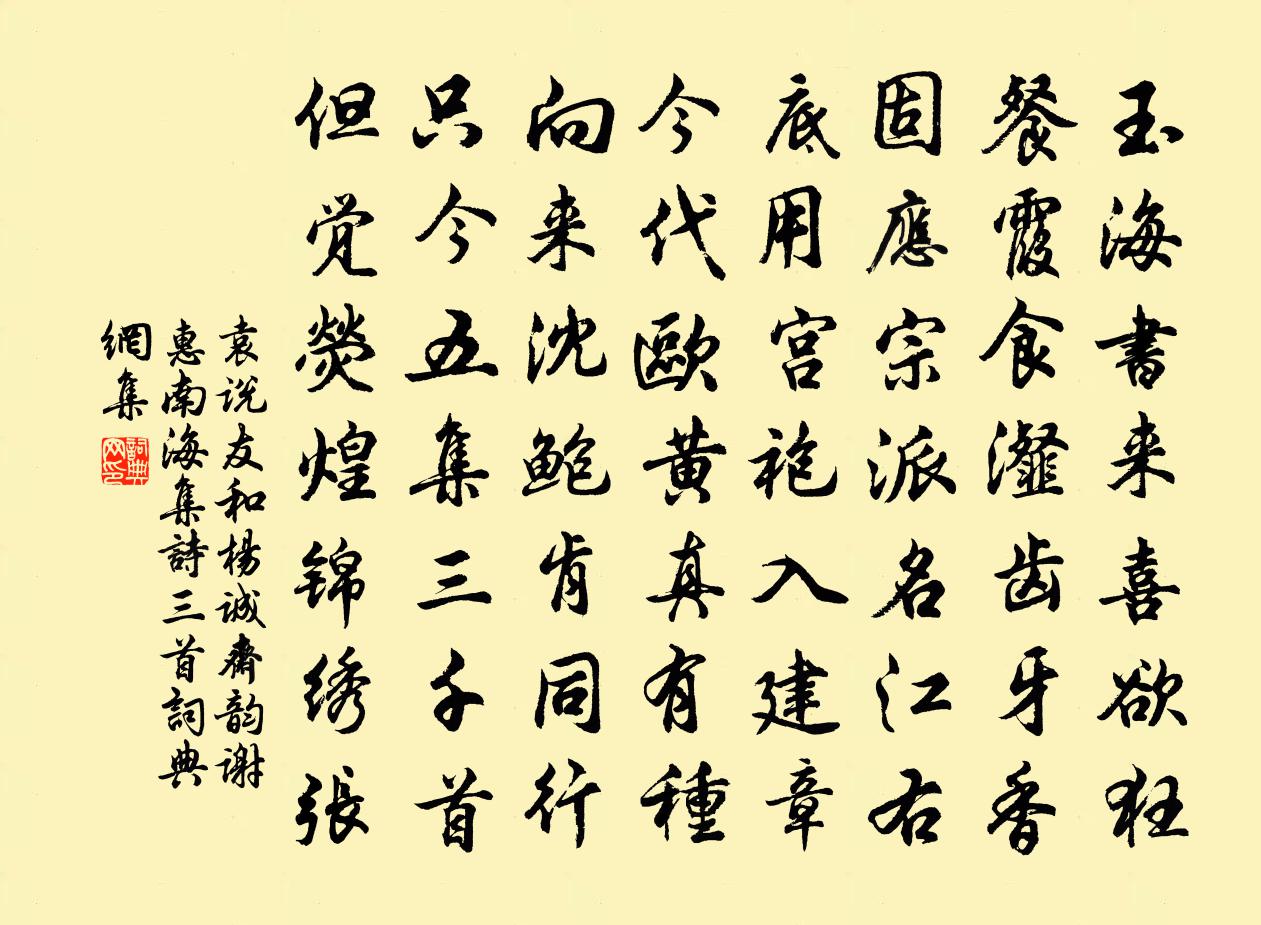 玉海书来喜欲狂
餐霞食瀣齿牙香
固應宗派名江右
底用宫袍入建章
今代歐黄真有種
向来沈鲍肯同行
只今五集三千首
但觉熒煌锦绣張
袁说友和楊诚齋韵谢
惠南海集詩三首詞典
網集
詞典网印